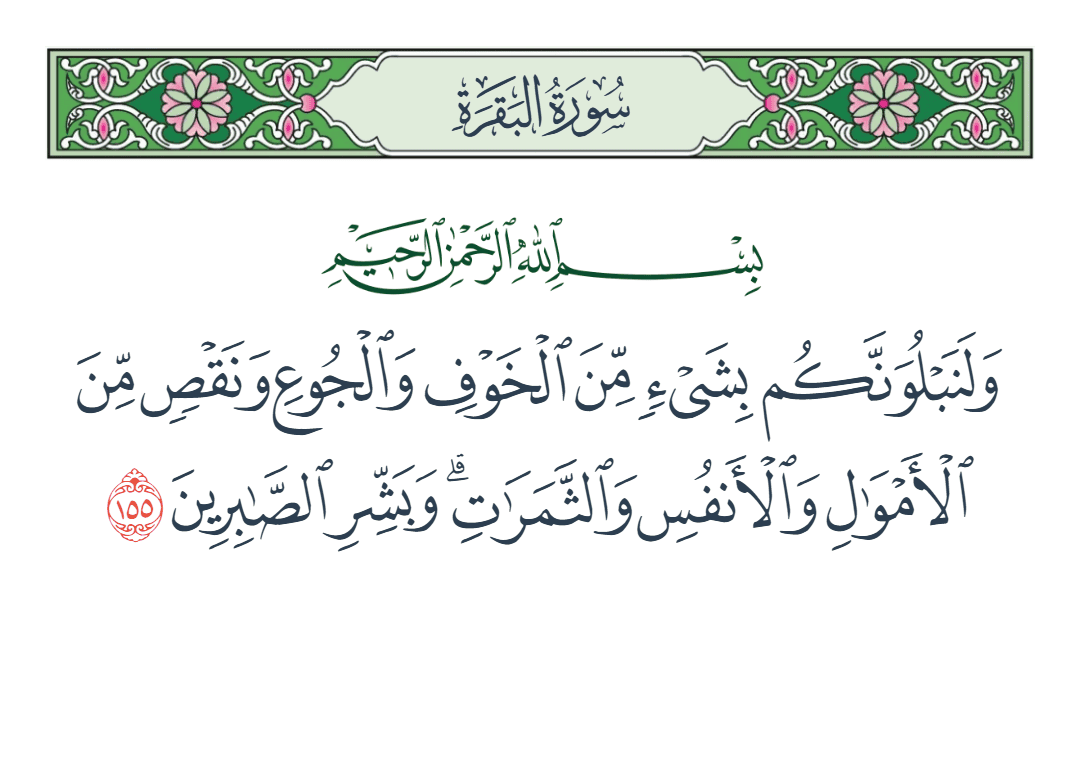 سُورَةُ البَقَرَةِ
بِسْمِ ٱللَّهِ ٱلرَّحْمَٰنِ ٱلرَّحِيمِ
وَلَنَبْلُوَنَّكُم بِشَىْءٍ مِّنَ ٱلْخَوْفِ وَٱلْجُوعِ وَنَقْصٍ مِّنَ
ٱلْأَمْوَٰلِ وَٱلْأَنفُسِ وَٱلثَّمَرَٰتِ ۗ وَبَشِّرِ ٱلصَّٰبِرِينَ ١٥٥